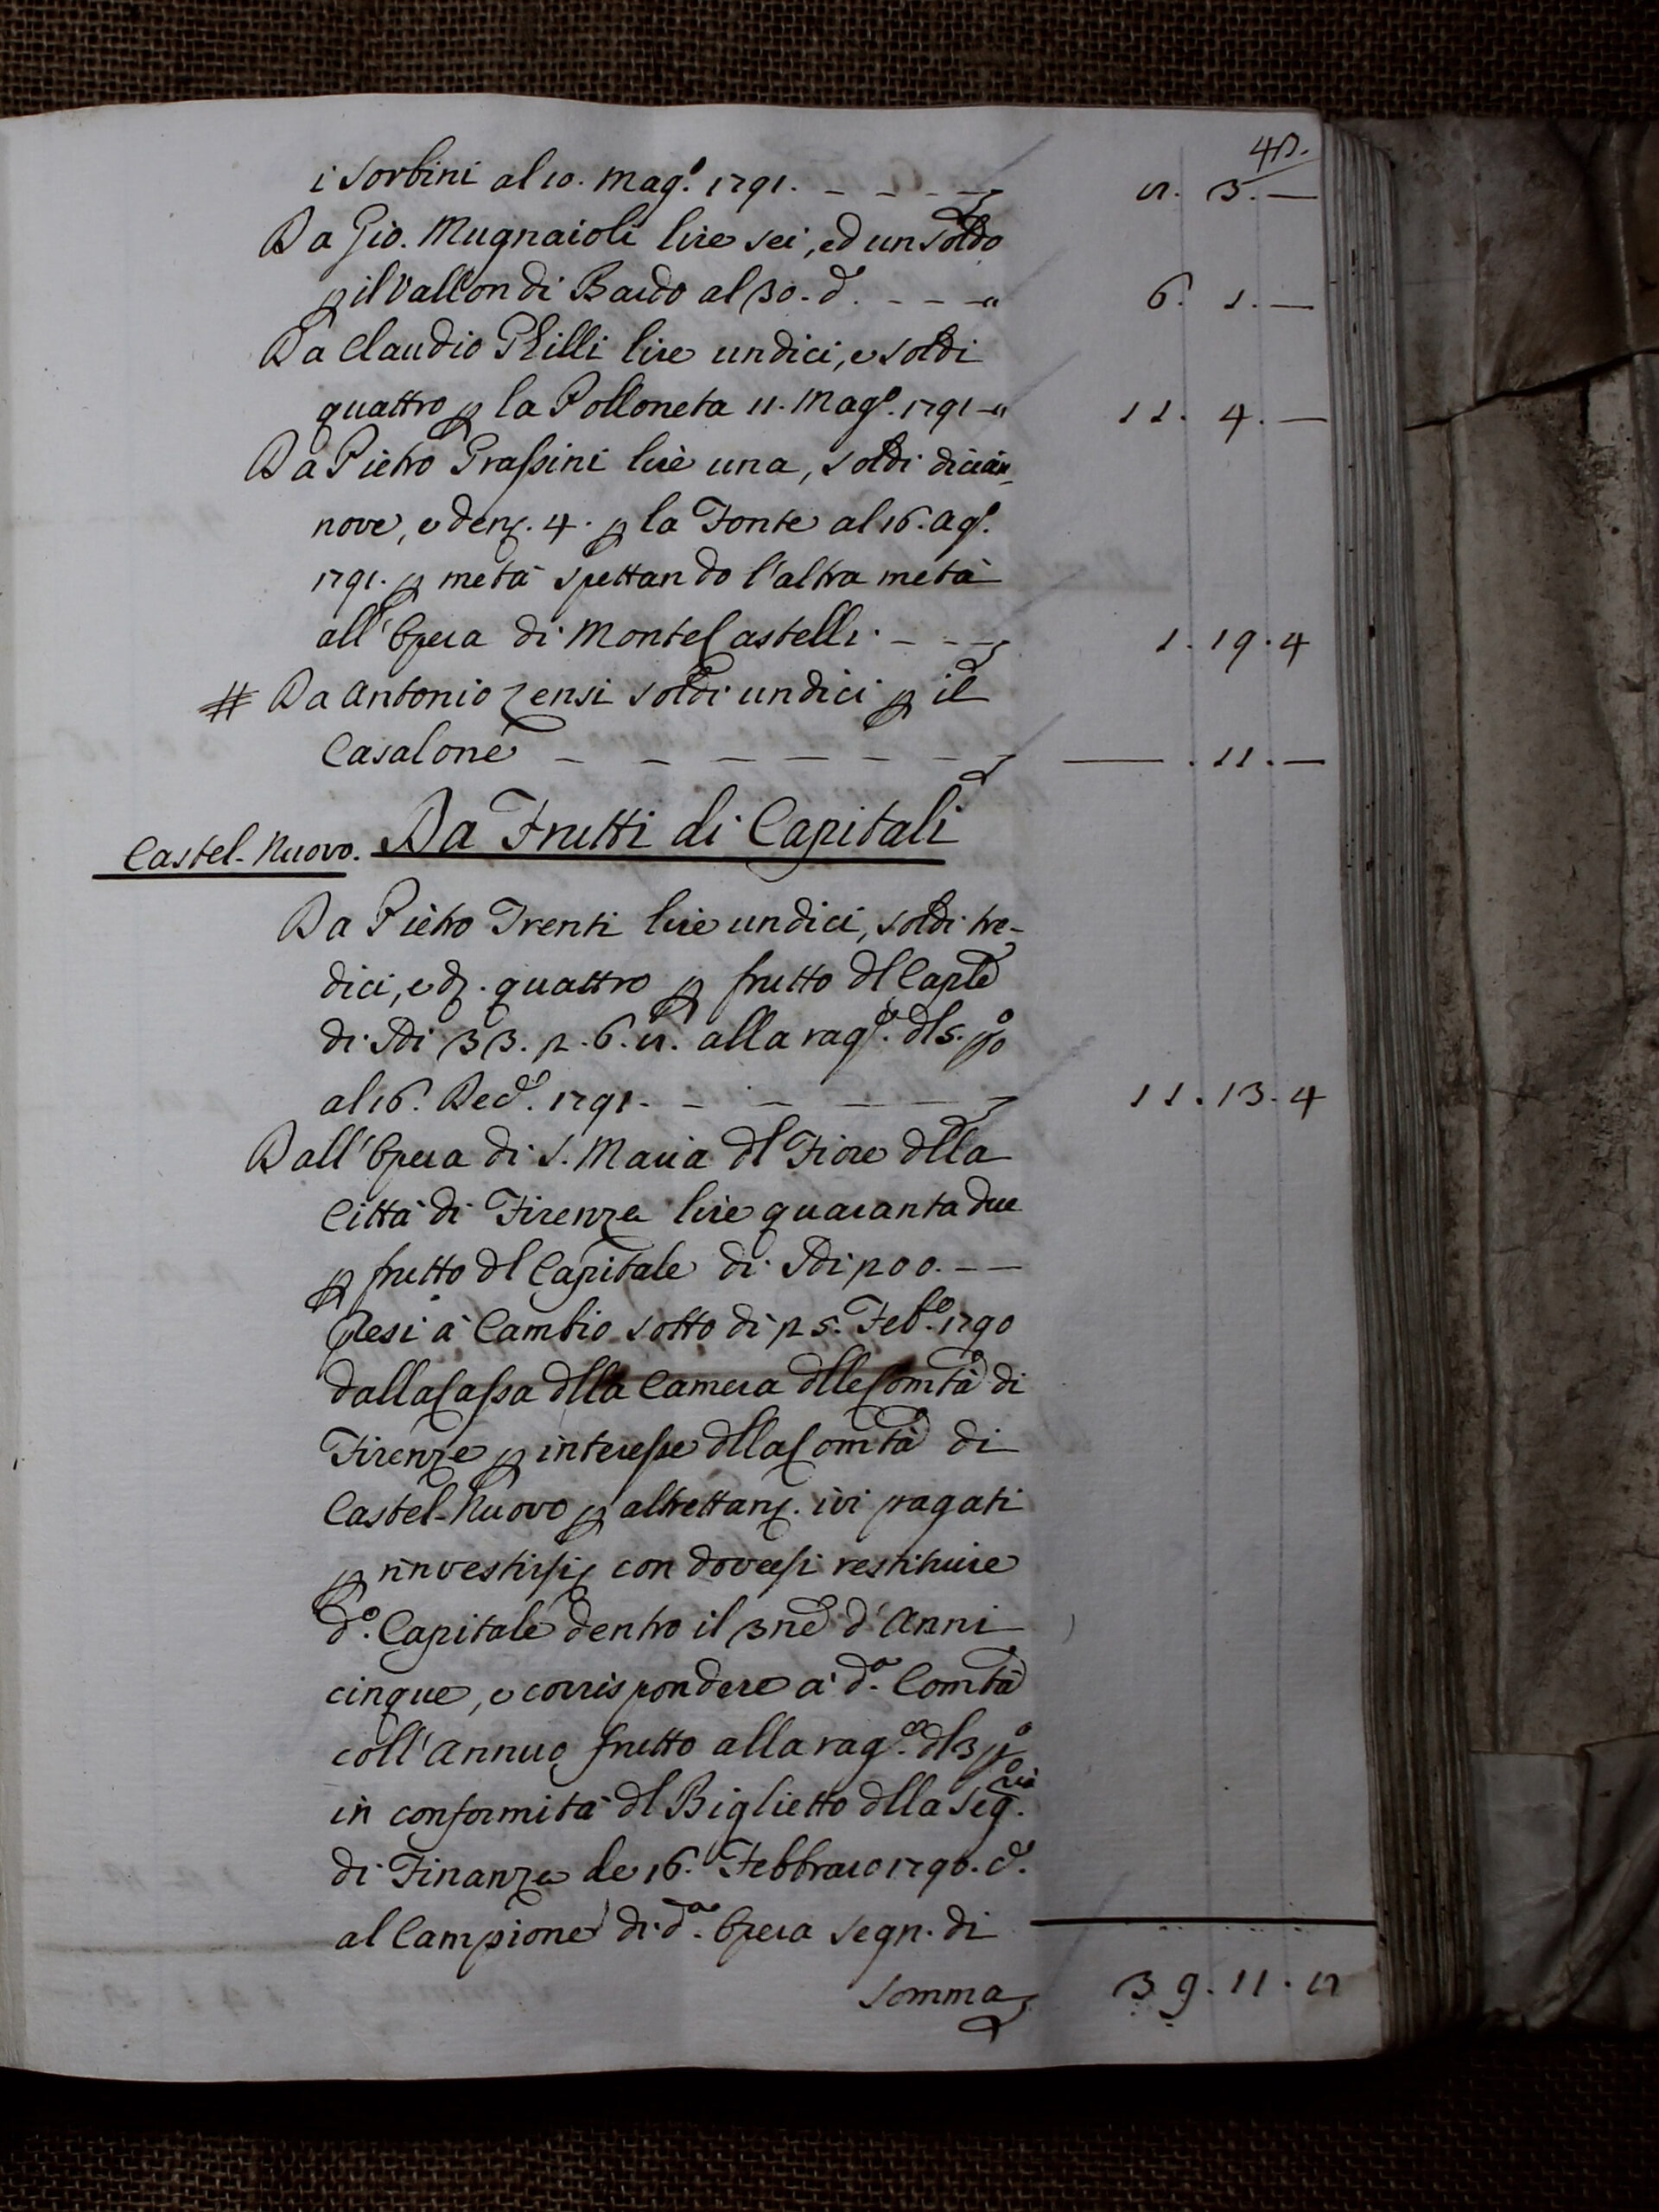 48.
i Sorbini al 10. Magg.º 1791. - - - - 8. 3. —
Da Gio. Mugnaioli lire sei, ed un Soldo
p il Vallon di Bardo al 30. dº. - - - " 6. 1. —
Da Claudio Ghilli lire undici, e soldi
quattro p la Polloneta 11. Magº. 1791 - " 11. 4. —
Da Pietro Grassini lire una, soldi dician-
nove, e denz. 4. p la Fonte al 16. Agº.
1791. p metà spettando l'altra metà
all'Opera di MonteCastelli - - - 1. 19. 4
# Da Antonio Zensi soldi undici p il
Casalone - - - - - - - — . 11. —
Castel-Nuovo. Da Frutti di Capitali
Da Pietro Trenti lire undici, soldi tre-
dici, e dz. quattro p frutto dl Caple
di Sdi 33. 2. 6. 8. alla ragº. dl 5. p%
al 16. Decº. 1791. - - - - - - 11. 13. 4
Dall'Opera di S. Maria dl Fiore dlla
Città di Firenze lire quaranta due
p frutto dl Capitale di Sdi 200. — —
presi à Cambio sotto dì 25. Febº. 1790
dalla Cassa dlla Camera dlle Comtà di
Firenze p interesse dlla Comtà di
Castel-Nuovo p altrettanz. ivi pagati
p rinvestirsi, con doversi restituire
dº. Capitale dentro il 3ne d'Anni
cinque, e corrispondere à dª. Comtà
coll'Annuo frutto alla ragº. dl 3 p%
in conformità dl Biglietto dlla Segria.
di Finanze de 16. Febbraio 1790. cº.
al Campione di dª. Opera segn. di
Somma 39. 11. 8